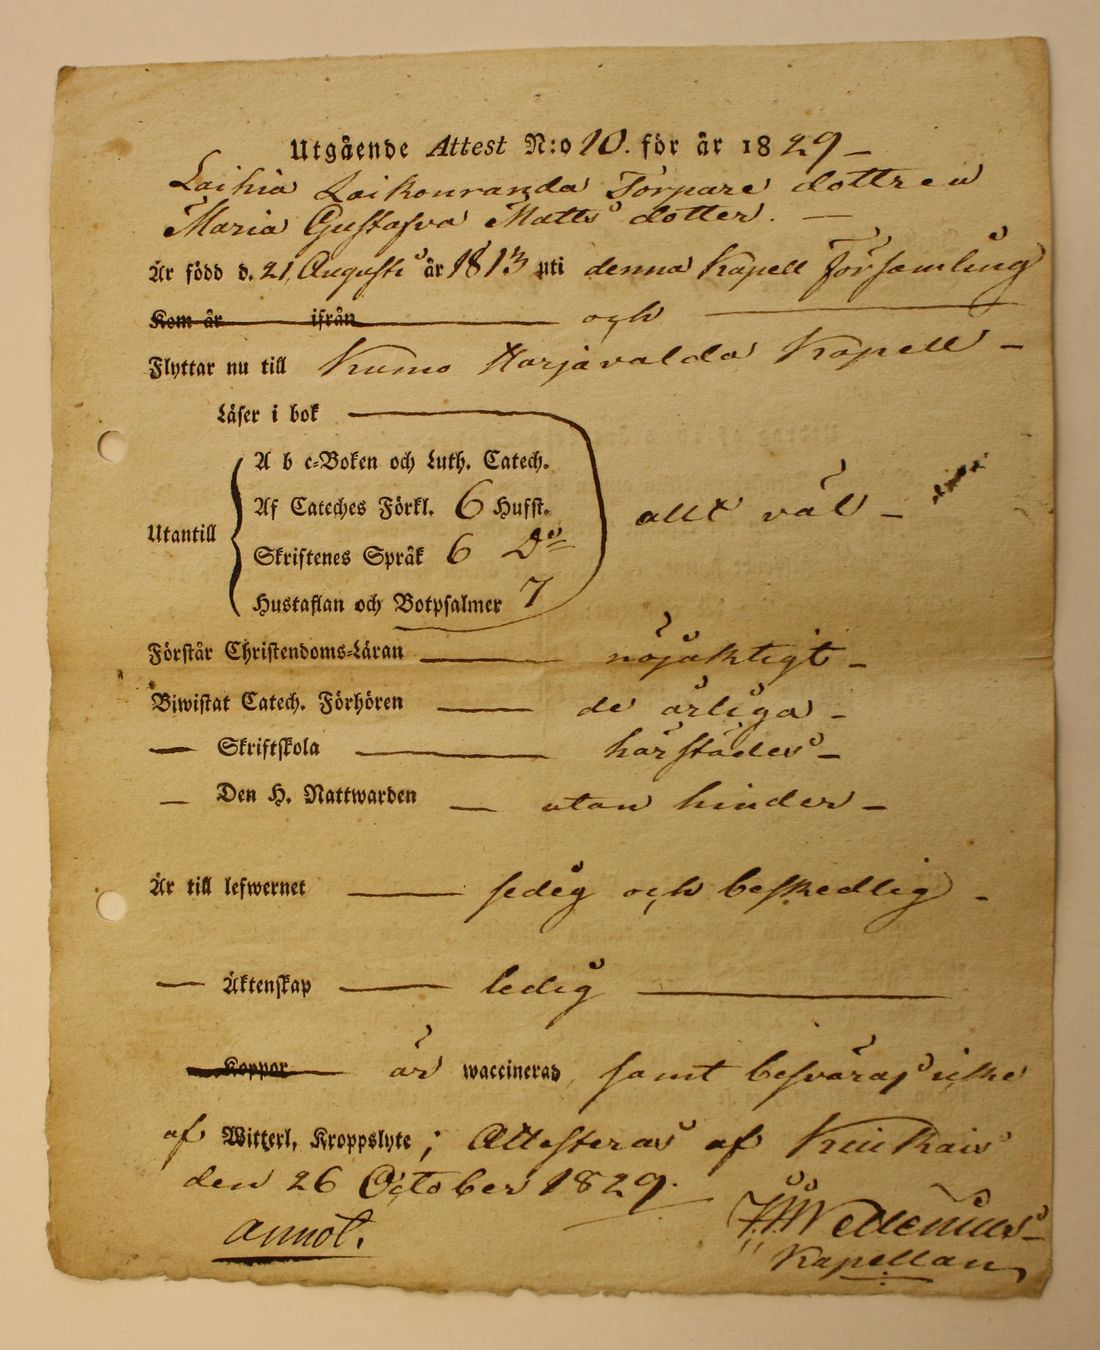 Utgående Attest N:o 10. för år 1829 –
Laihia Laikonranda Torpare dottren
Maria Gustafva Matts dotter. –
Är född d. 21 Augusti år 1813 uti denna Kapell Församling
Kom år ifrån och
Flyttar nu till Kumo Harjavalda Kapell –
Läser i bok
A b c-Boken och Luth. Catech.
Af Cateches Förkl. 6 Hufst. allt väl –
Utantill
Skriftenes Språk 6 Do
Hustaflan och Botpsalmer 7
Förstår Christendoms-Läran nöjaktigt –
Biwistat Catech. Förhören de årliga –
— Skriftskola härstädes –
— Den H. Nattwarden — utan hinder –
Är till lefwernet sedig och beskedlig –
— Äktenskap — ledig
Koppor är waccinerad, samt besväras icke
af Witterl. Kroppslyte; Attesteras af Kiukais
den 26 October 1829.
Wellenius –
annot.
Kapellan